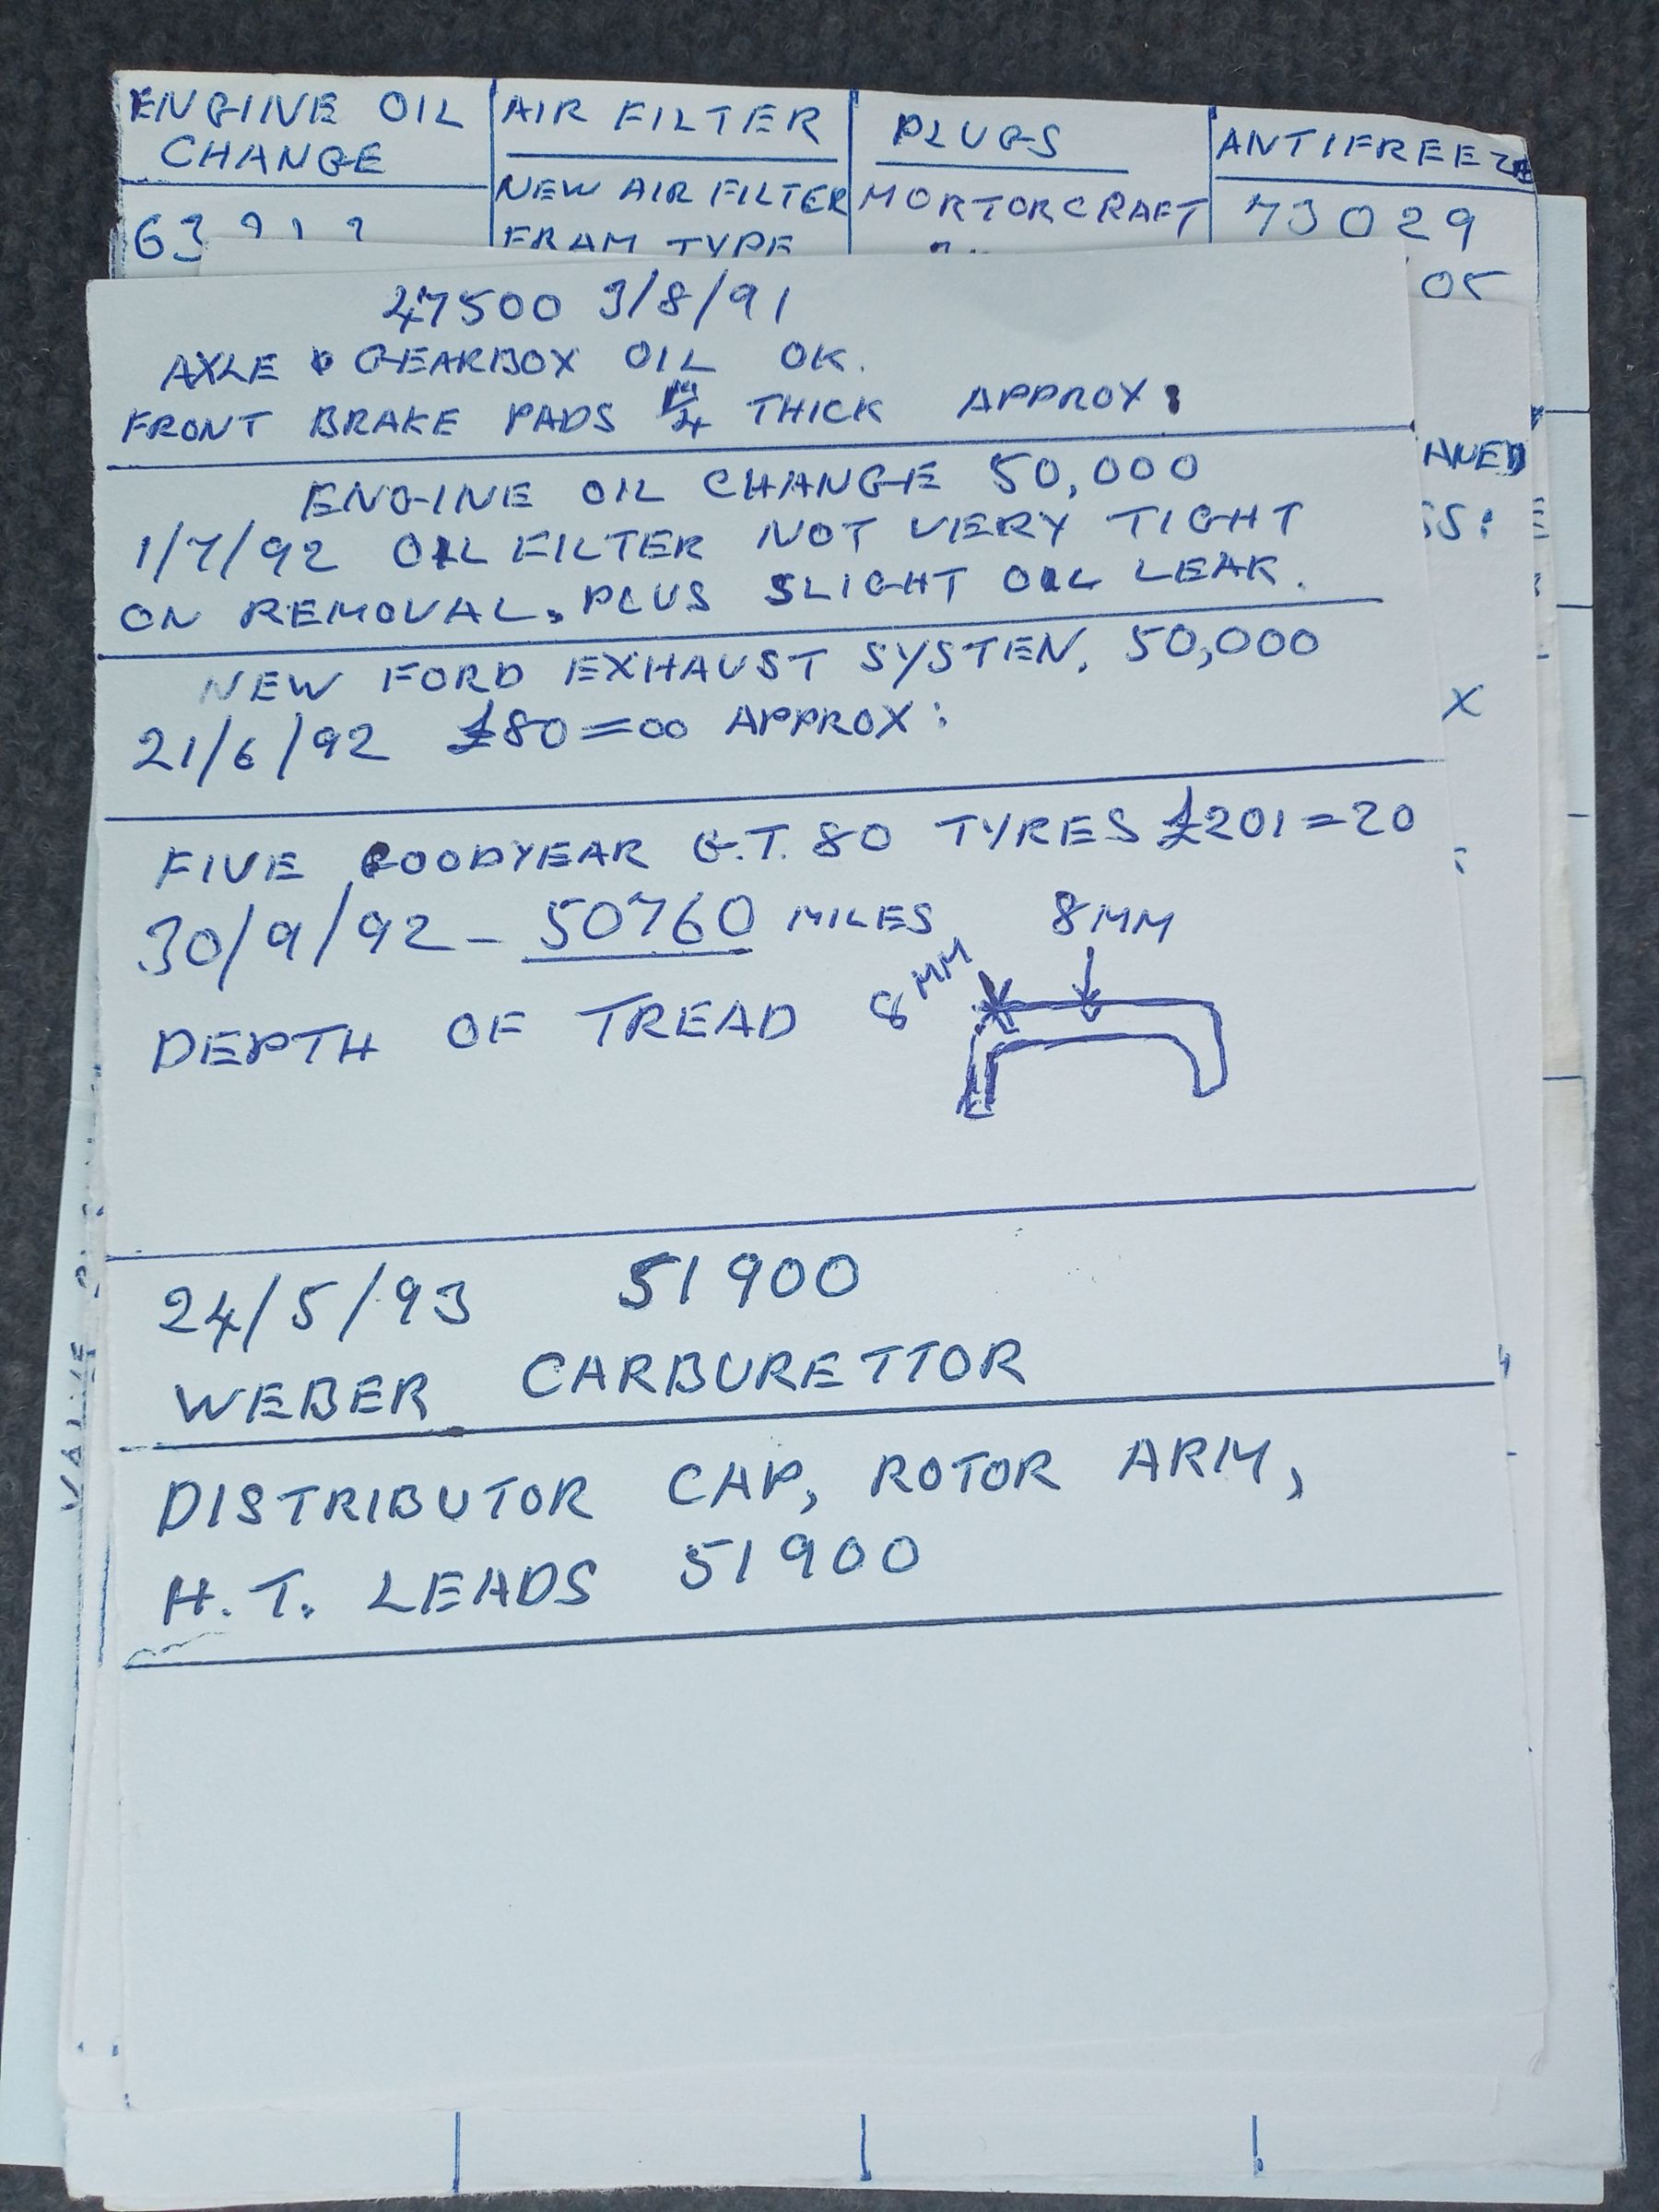 ENGINE OIL CHANGE
AIR FILTER
PLUGS
ANTIFREEZE
NEW AIR FILTER
FRAM TYPE
MORTORCRAFT
73029
63
05
47500 3/8/91
AXLE & GEARBOX OIL OK.
FRONT BRAKE PADS THICK APPROX:
ENGINE OIL CHANGE 50,000
1/7/92 OIL FILTER NOT VERY TIGHT
ON REMOVAL. PLUS SLIGHT OIL LEAK.
NEW FORD EXHAUST SYSTEN. 50,000
21/6/92 £80=00 APPROX:
FIVE GOODYEAR G.T. 80 TYRES £201=20
30/9/92 - 50760 MILES
8MM
DEPTH OF TREAD 8MM
24/5/93 51900
WEBER CARBURETTOR
DISTRIBUTOR CAP, ROTOR ARM,
H.T. LEADS 51900
ANED
SS:
X